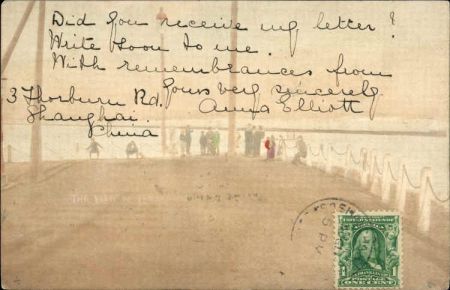 Did you receive my letter?
Write soon to me.
With remembrances from
Yours very sincerely
3 Thorburn Rd. Anna Elliott
Shanghai.
China
THE
POSTAGE
ONE CENT